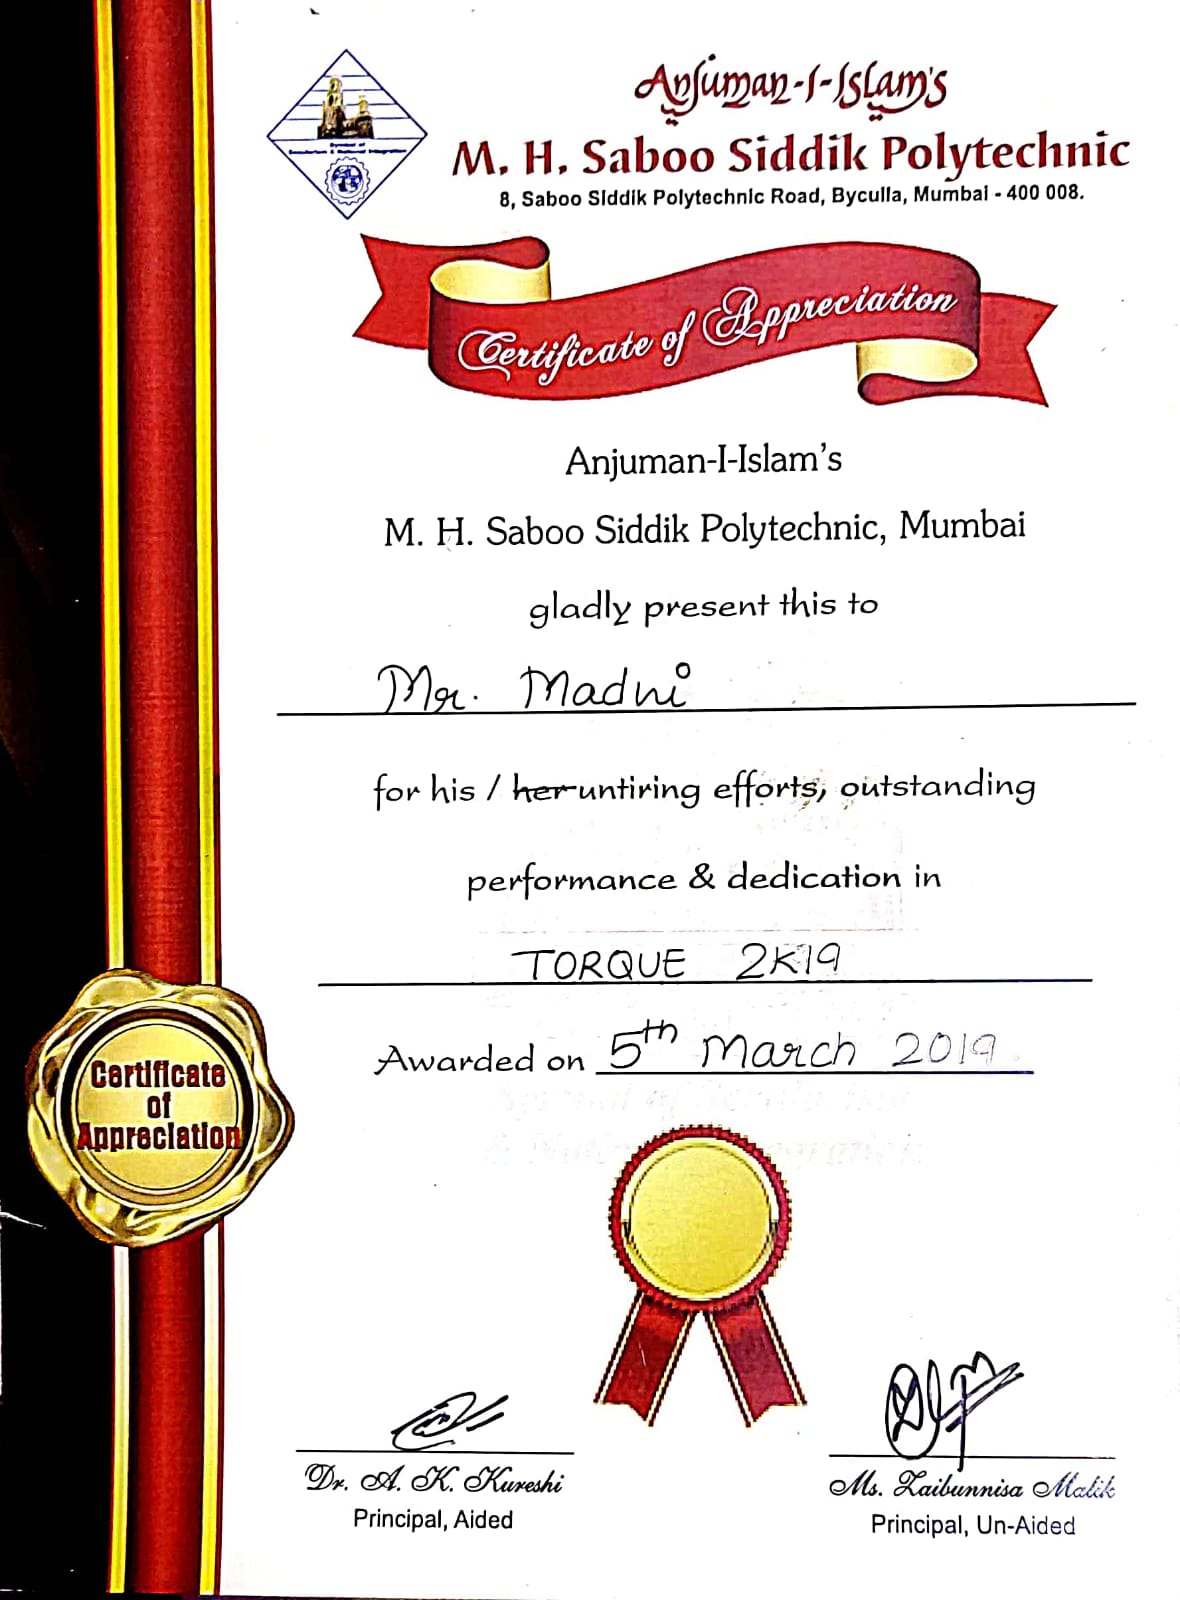 Symbol of
Secularism & National Integration
Anjuman-I-Islam's
M. H. Saboo Siddik Polytechnic
8, Saboo Siddik Polytechnic Road, Byculla, Mumbai - 400 008.
Certificate of Appreciation
Anjuman-I-Islam's
M. H. Saboo Siddik Polytechnic, Mumbai
gladly present this to
Mr. Madni
for his / her untiring efforts, outstanding
performance & dedication in
TORQUE 2K19
Awarded on 5th March 2019
Certificate
of
Appreciation
Dr. A. K. Kureshi
Principal, Aided
Ms. Zaibunnisa Malik
Principal, Un-Aided